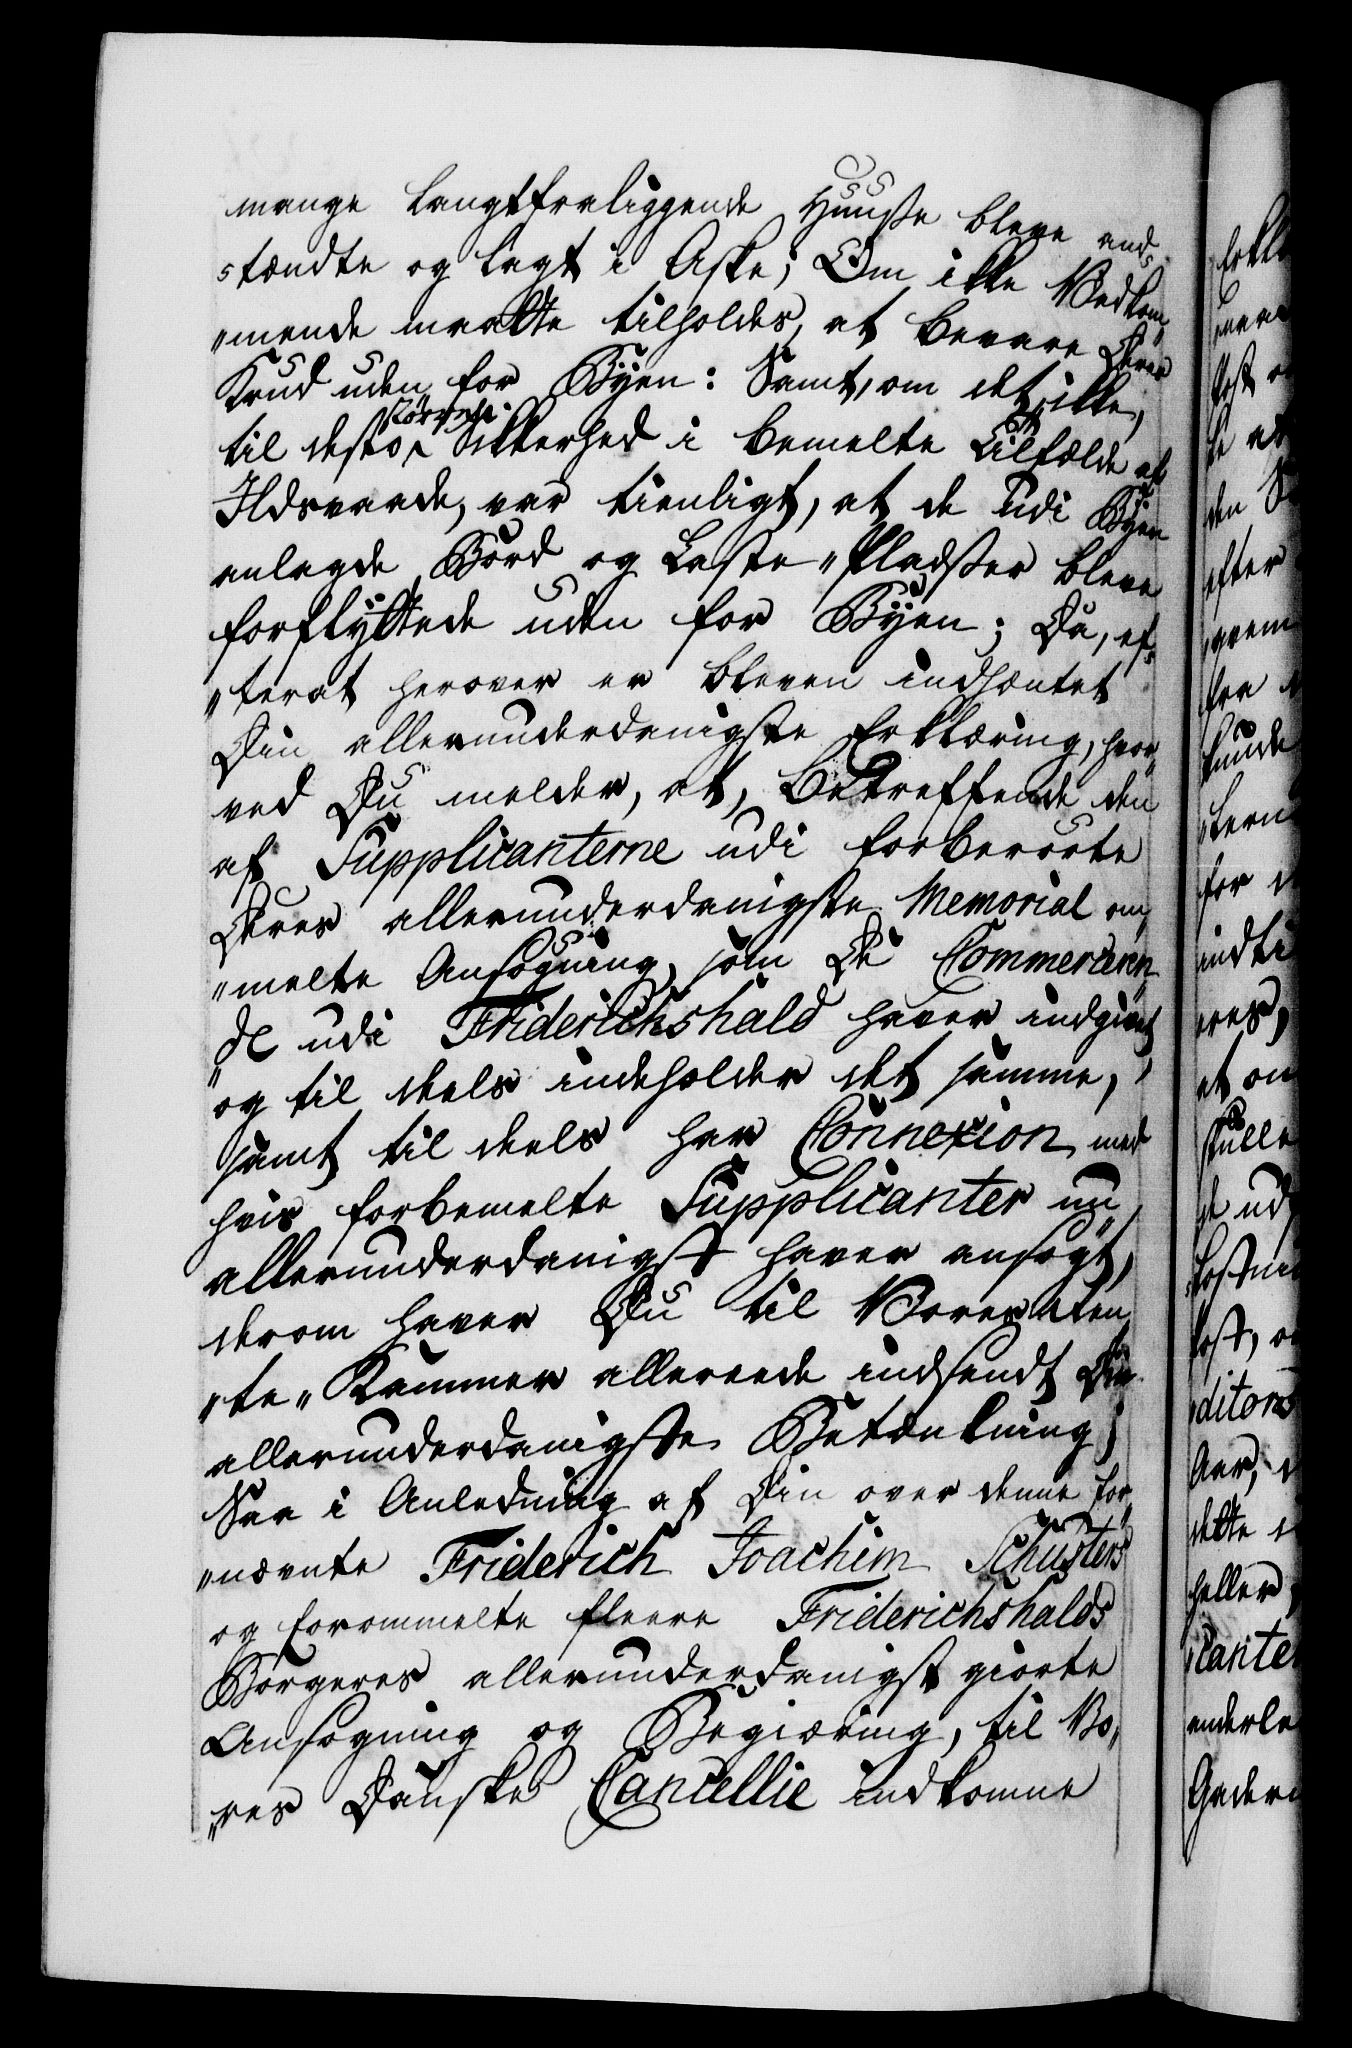 mange langtfraliggende Huuse bleve and
tændte og lagt i Aske; Om ikke Vedkom„
„mende maatte tilholdes, at bevare Deres
Krud uden for Byen: Samt, om det ikke,
til desto större Sikkerhed i bemelte Tilfælde af
Ildsvaade, var tienligt, at de udi Byen
anlagde Bord og Laste„Pladser bleve
forflyttede uden for Byen; Da, ef„
„terat herover er bleven indhæntet
Din allerunderdanigste Erklæring, hvor„
ved Du melder, at, betreffende den
af Supplicanterne udi forberörte
Deres allerunderdanigste Memorial om„
„melte Ansögning, som De Commerceren„
„de udi Friderichshald haver indgivet
og til deels indeholder det samme,
samt til deels har Connexion med
hvis forbemelte Supplicanter nu
allerunderdanigst haver ansögt,
derom haver Du til Vores Ren„
„te„Kammer allereede indsendt Din
allerunderdanigste Betænkning;
Saa i Anledning af Din over denne for„
„nævnte Friderich Joachim Schusters
og forommelte fleere Friderichshalds
Borgeres allerunderdanigst giorte
Ansögning og Begiæring, til Vo„
„res Danske Cancellie indkomne